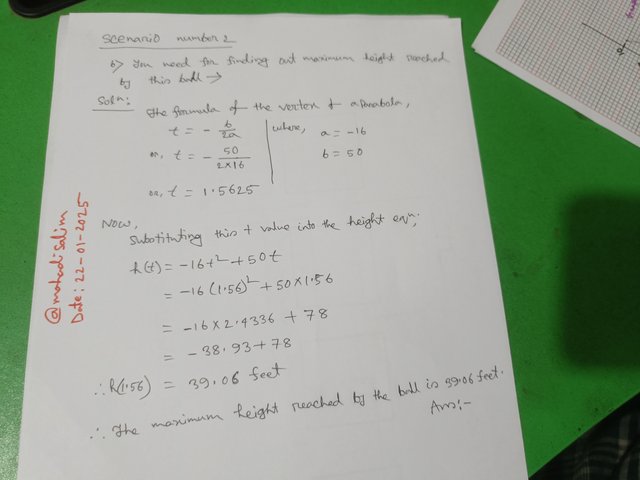 Scenario number 2
b) You need for finding out maximum height reached
by this ball →
Solⁿ:
The formula of the vertex of a parabola,
t = - b/2a
where,
a = -16
b = 50
or, t = - 50/2×16
or, t = 1.5625
Now,
substituting this t value into the height eqⁿ;
h(t) = -16t² + 50t
= -16 (1.56)² + 50×1.56
= -16×2.4336 + 78
= -38.93+78
∴ h(1.56) = 39.06 feet
∴ The maximum height reached by the ball is 39.06 feet.
Ans:-
@mahadisalim
Date: 22-01-2025